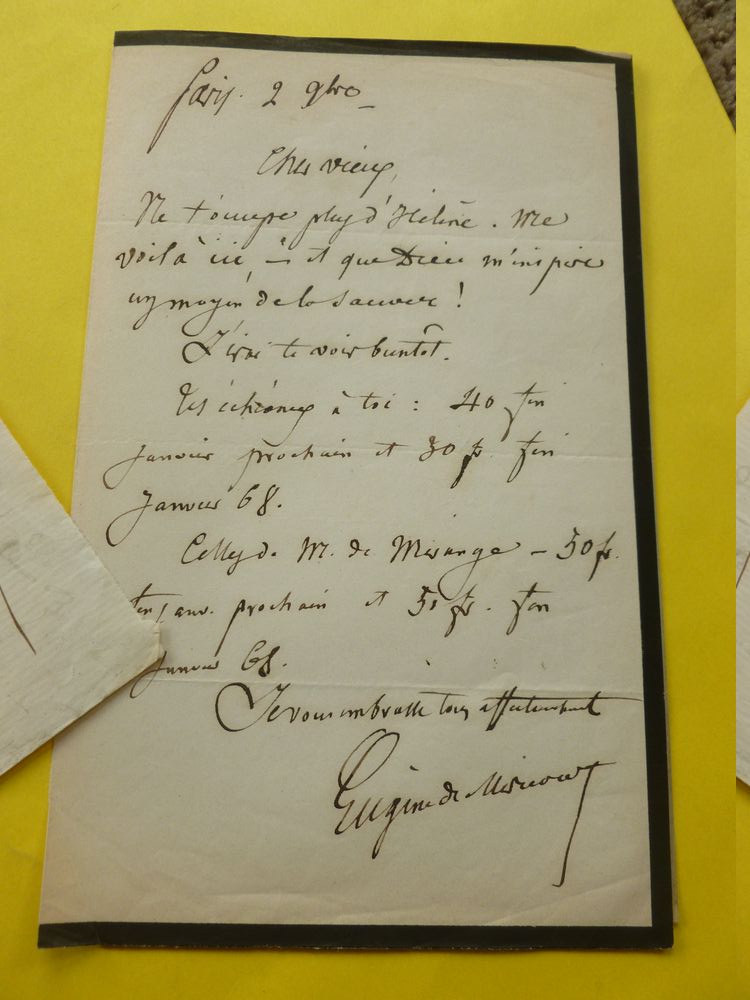 Paris. 2 9bre
Cher vieux,
Ne t'occupe plus d'Hélène. Me
voilà ici – et que Dieu m'inspire
un moyen de la sauver !
J'irai te voir bientôt.
Tes échéances à toi : 40 fin
Janvier prochain et 30 fr. fin
Janvier 68.
Celles de M. de Mérange – 50 fr.
fin janv. prochain et 50 fr. fin
Janvier 68.
Je vous embrasse tous affectueusement
Eugène de Mirecourt